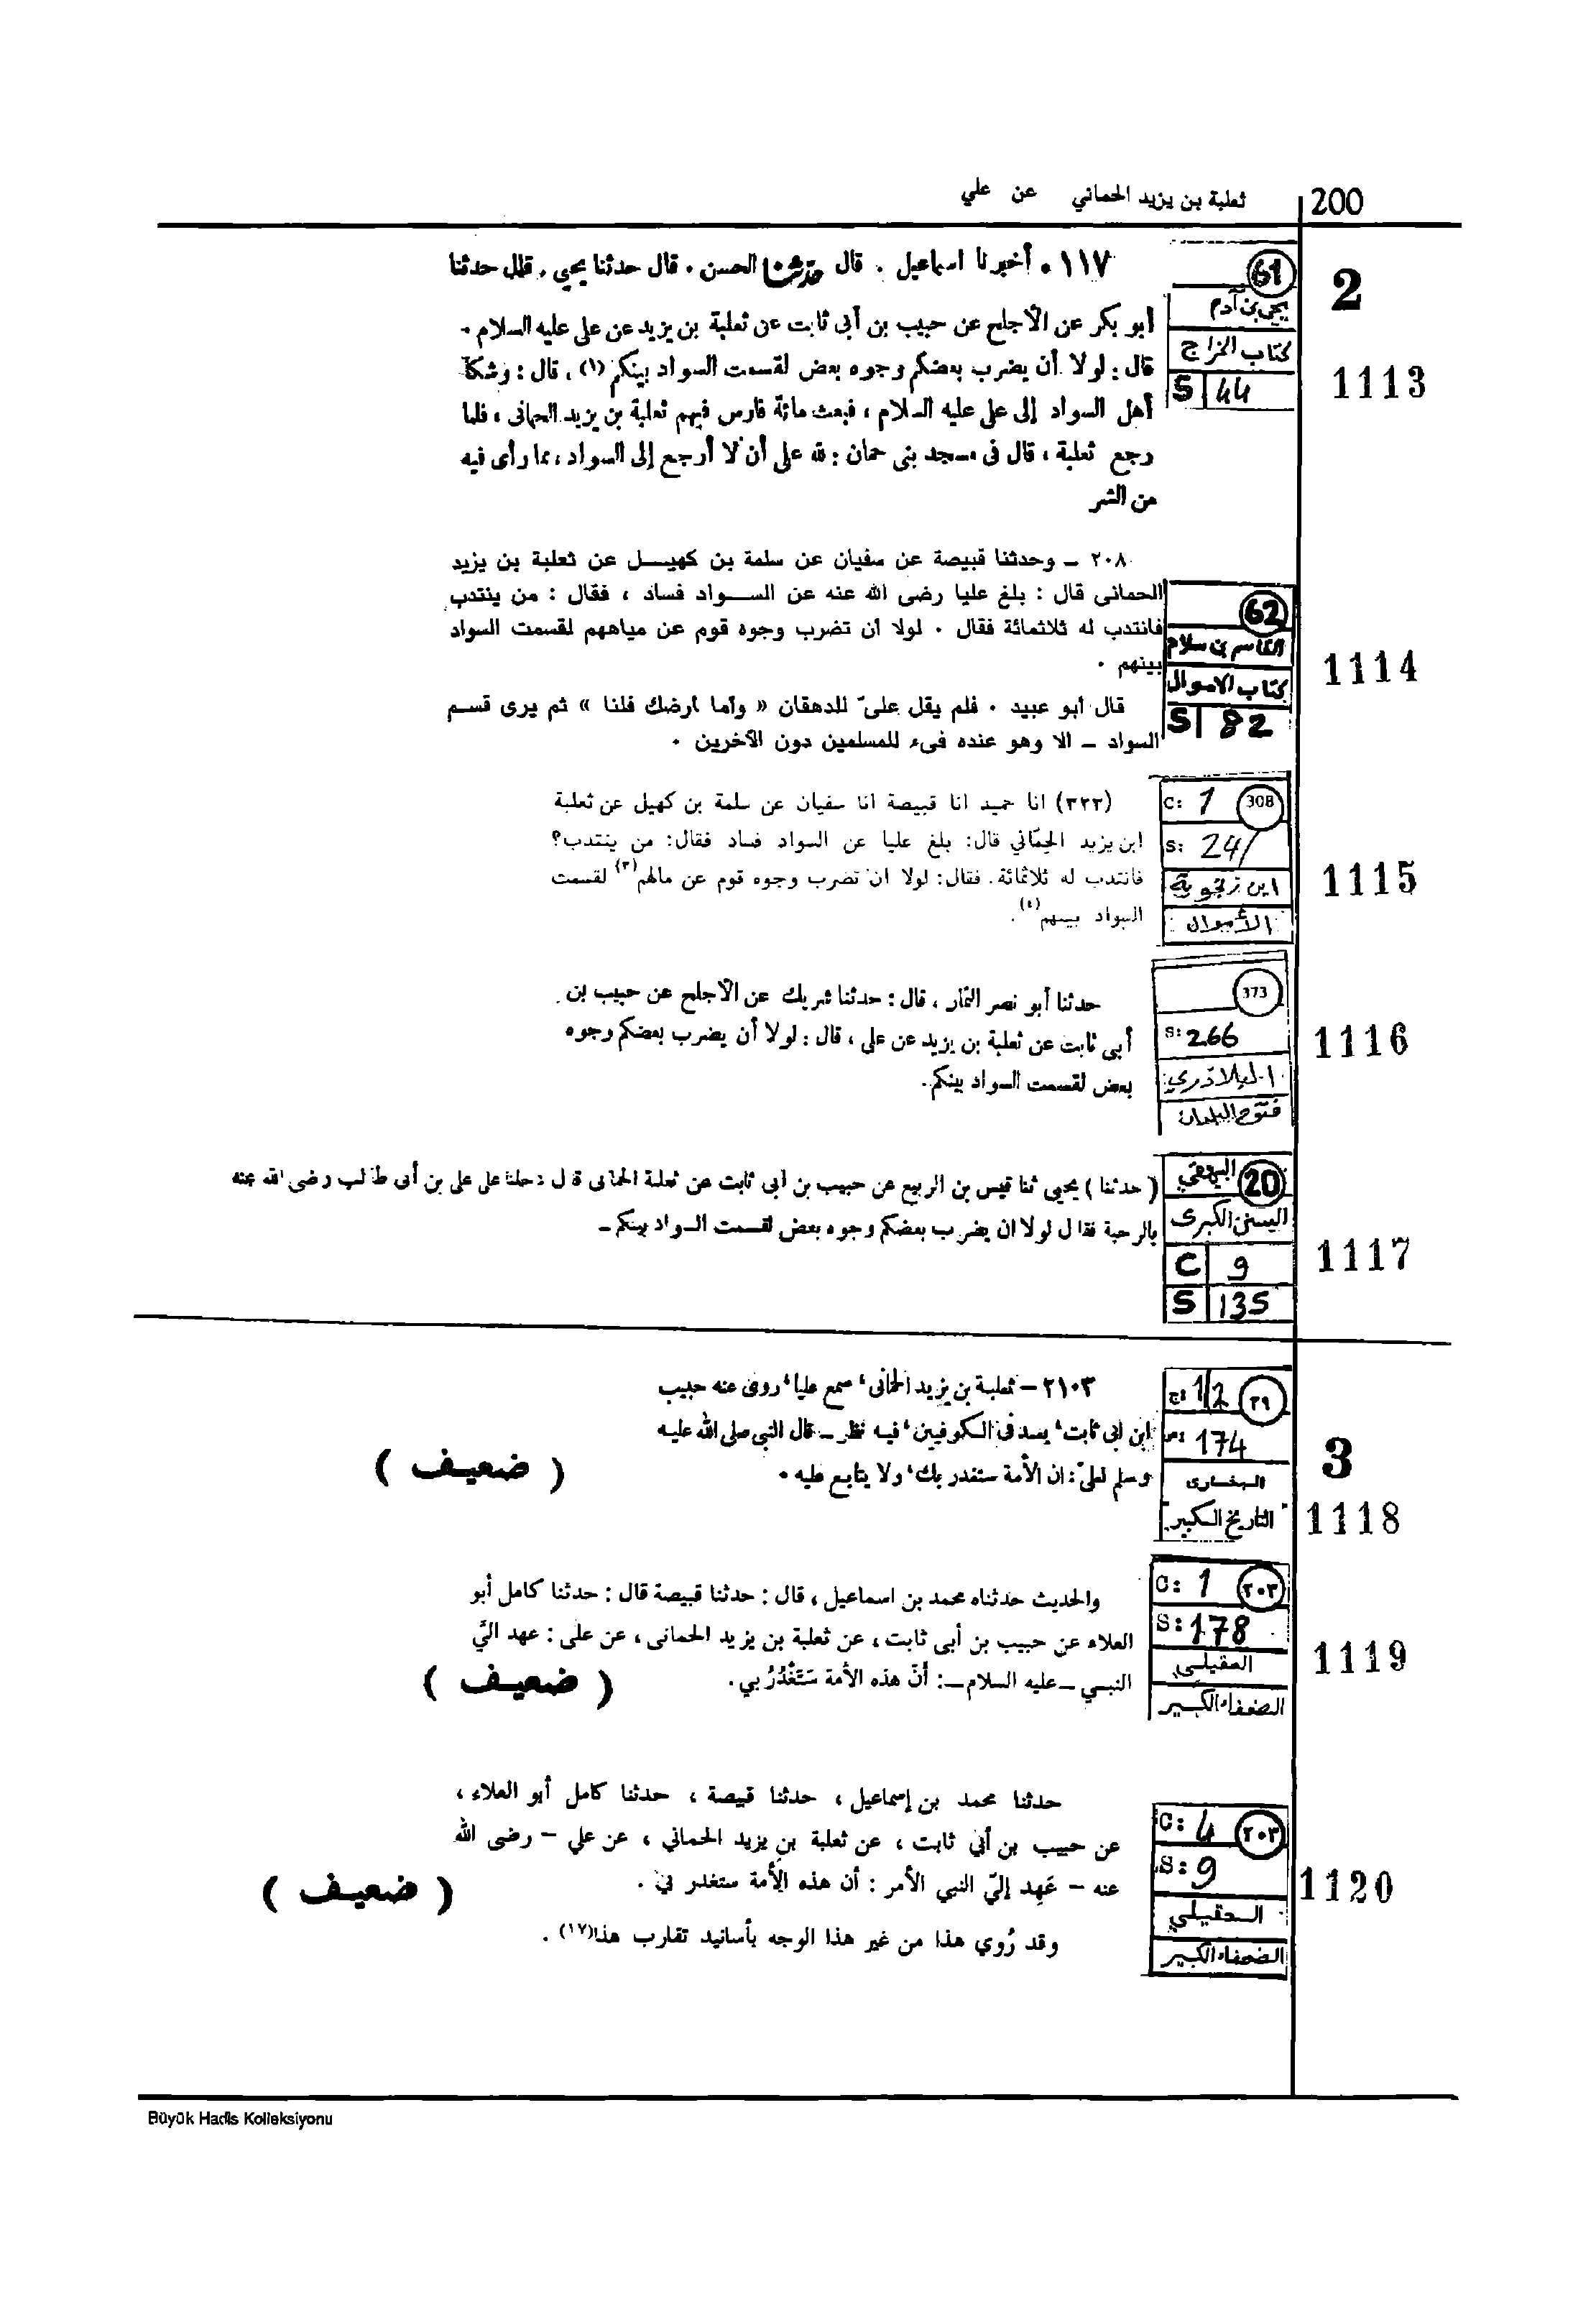 200
ثعلبة بن يزيد الحماني عن علي
61
يحيى بن آدم
كتاب الخراج
S 44
2
1113
١١٧ . أخبرنا اسماعيل . قال حدثنا الحسن . قال حدثنا يحيى . قال حدثنا
أبو بكر عن الأجلح عن حبيب بن أبى ثابت عن ثعلبة بن يزيد عن على عليه السلام .
قال : لولا أن يضرب بعضكم وجوه بعض لقسمت السواد بينكم (١) ، قال : وشكا
أهل السواد إلى على عليه السلام ، فبعث مائة فارس فيهم ثعلبة بن يزيد الحمانى ، فلما
رجع ثعلبة ، قال فى مسجد بنى حمان : لله على أن لا أرجع إلى السواد ، مما رأى فيه
من الشر
62
القاسم بن سلام
كتاب الاموال
S 82
1114
٢٠٨ ـ وحدثنا قبيصة عن سفيان عن سلمة بن كهيــل عن ثعلبة بن يزيد
الحمانى قال : بلغ عليا رضى الله عنه عن الســواد فساد ، فقال : من ينتدب
فانتدب له ثلاثمائة فقال ٠ لولا أن تضرب وجوه قوم عن مياههم لقسمت السواد
بينهم ٠
قال أبو عبيد ٠ فلم يقل علىّ للدهقان « وأما أرضك فلنا » ثم يرى قسـم
السواد ـ الا وهو عنده فىء للمسلمين دون الآخرين ٠
C: 1 308
S: 241
ابن زنجوية
الأموال
1115
(٣٢٢) انا حميد انا قبيصة انا سفيان عن سلمة بن كهيل عن ثعلبة
ابن يزيد الحِمّاني قال: بلغ عليا عن السواد فساد فقال: من ينتدب؟
فانتدب له ثلاثمائة. فقال: لولا ان تضرب وجوه قوم عن مالهم(٣) لقسمت
السواد بينهم(٤).
373
S: 266
البلاذري
فتوح البلدان
1116
حدثنا أبو نصر التمار ، قال : حدثنا شريك عن الأجلح عن حبيب بن
أبى ثابت عن ثعلبة بن يزيد عن على ، قال : لولا أن يضرب بعضكم وجوه
بعض لقسمت السواد بينكم.
البيهقي 20
السنن الكبرى
C 9
S 135
1117
( حدثنا ) يحيى ثنا قيس بن الربيع عن حبيب بن ابى ثابت عن ثعلبة الحمانى قال دخلنا على على بن أبى طالب رضى الله عنه
بالرحبة فقال لولا ان يضرب بعضكم وجوه بعض لقسمت السواد بينكم ـ
ج: 1/2 ٣٩
ص: 174
البخارى
التاريخ الكبير
3
1118
٢١٠٣ – ثعلبة بن يزيد الحمانى، سمع عليا، روى عنه حبيب
ابن ابى ثابت، يعد فى الكوفيين، فيه نظر ـ قال النبى صلى الله عليه
وسلم لعلى : ان الأمة ستغدر بك، ولا يتابع عليه ٠
( ضعيـف )
C: 1 ٢٠٣
S: 178
العقيلي
الضعفاء الكبير
1119
والحديث حدثناه محمد بن اسماعيل ، قال : حدثنا قبيصة قال : حدثنا كامل أبو
العلاء عن حبيب بن أبى ثابت ، عن ثعلبة بن يزيد الحمانى ، عن على : عهد الىَّ
النبـي ـ عليه السلام ـ : أنّ هذه الأمة سَتَغْدُرُ بي .
( ضعيـف )
C: 4 ٢٠٣
S: 9
العقيلي
الضعفاء الكبير
1120
حدثنا محمد بن إسماعيل ، حدثنا قبيصة ، حدثنا كامل أبو العلاء ،
عن حبيب بن أبي ثابت ، عن ثعلبة بن يزيد الحماني ، عن علي – رضى الله
عنه – عَهِد إليّ النبي الأمر : أن هذه الأمة ستغدر بي .
وقد رُوي هذا من غير هذا الوجه بأسانيد تقارب هذا(١٧) .
( ضعيـف )
Büyük Hadis Kolleksiyonu